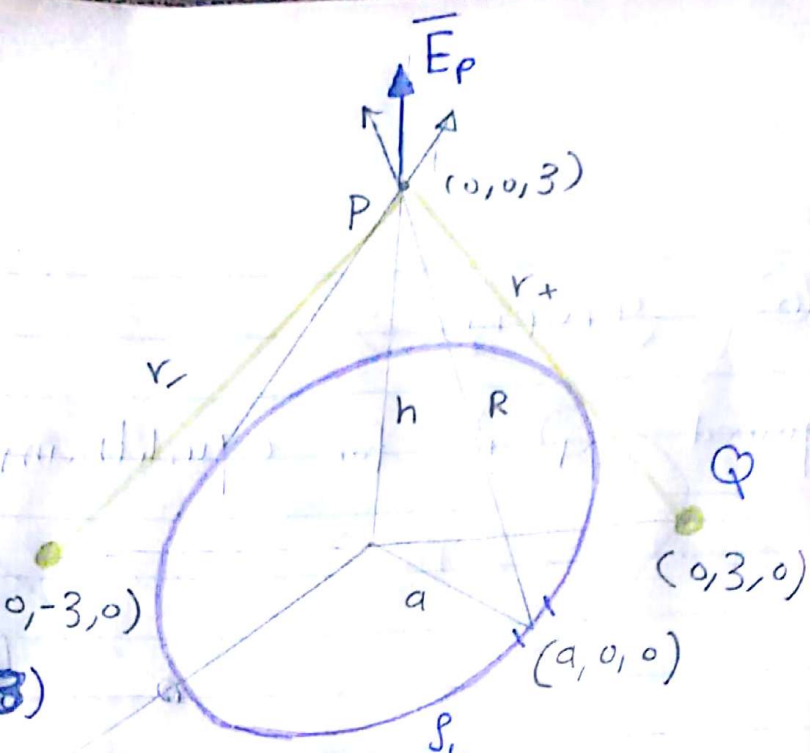 E̅ₚ
(0,0,3)
P
r₊
r₋
h
R
Q
(0,3,0)
0,-3,0)
a
(a,0,0)